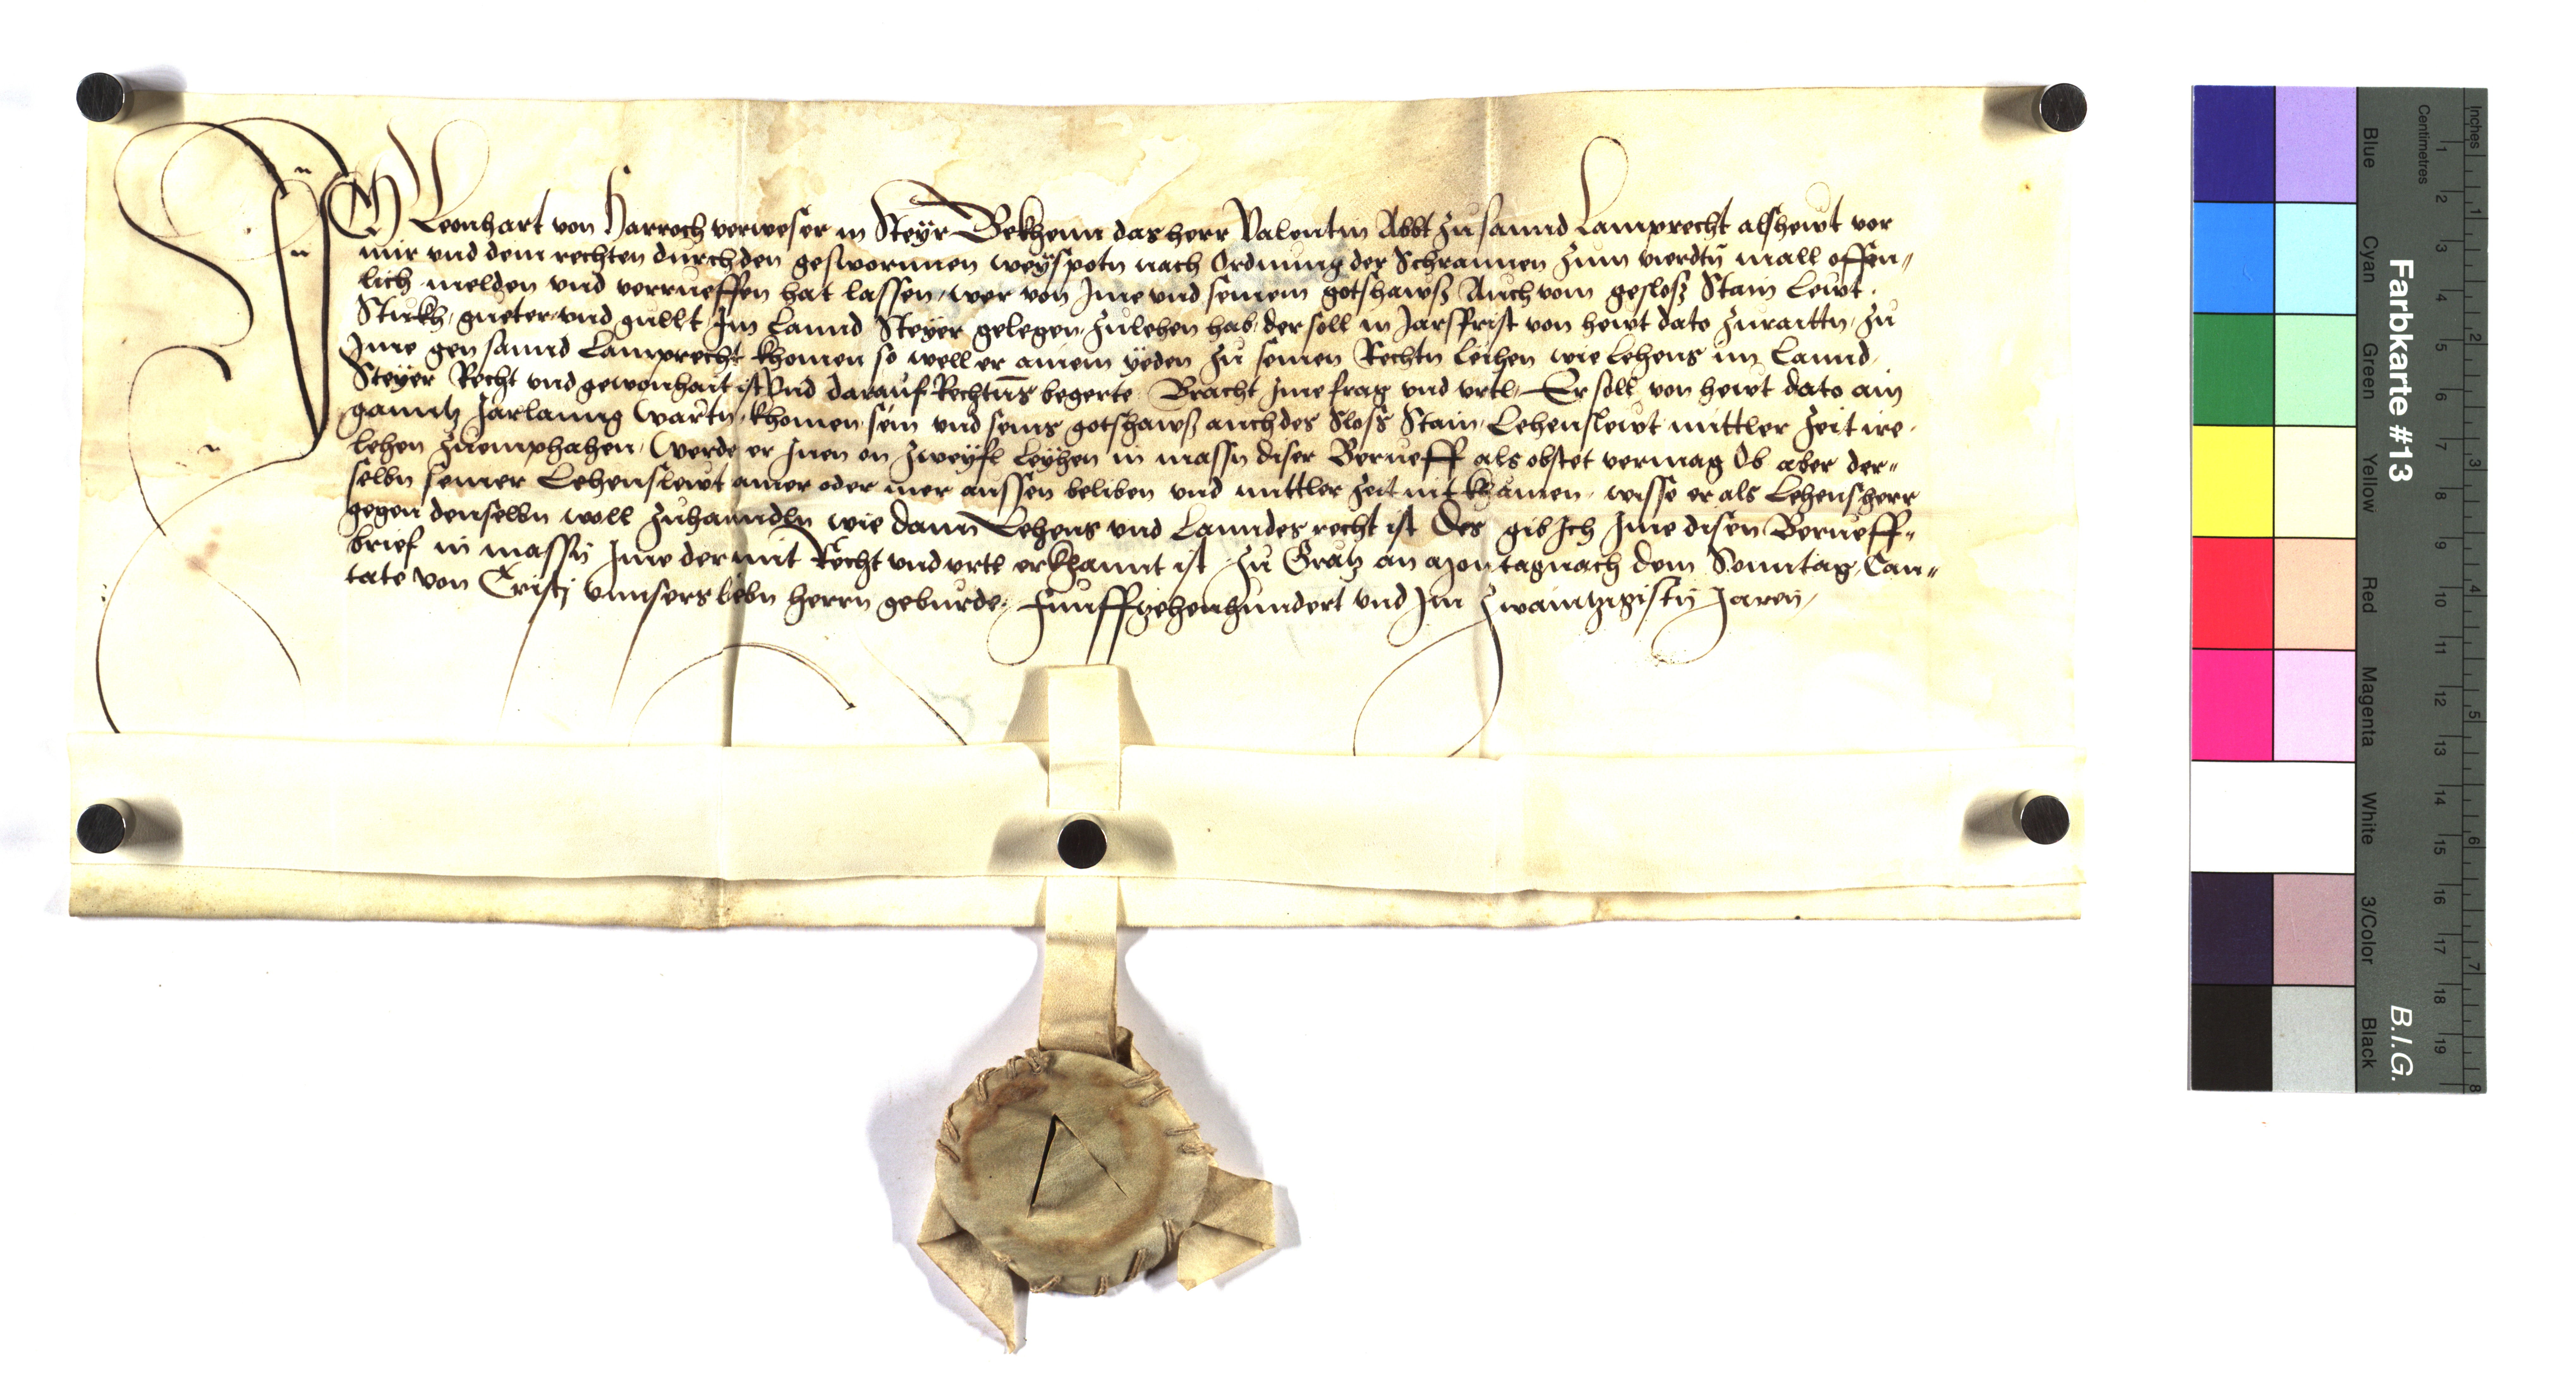 Ich Leonhart von Harroch verweser in Steyr Bekhenn das herr Valentin Abbt zu sannd Lamprecht als hewt vor
mir vnd dem rechten durch den geswornnen weyspotn nach Ordnung der Schrannen zum vierdtn mall offen„
lich melden vnd verrueffen hat lassen, wer von Ime vnd seinem gotshawß Auch vom gesloß Stain Lewt.
Stukh, gueter, vnd gullt Im Lannd Steyer gelegen, zulehen hab, der soll in Jarsfrist von hewt dato zuraittn, zu
Ime gen sannd Lamprecht khomen so well er ainem yeden zu seinen Rechtn leihen wie lehens im Lannd
Steyer Recht vnd gewonhait ist Vnd darauf Rechtens begerte Bracht Ime frag vnd vrtl, Er soll von hewt dato ain
ganntz Jarlanng wartn, khomen sein vnd seins gotshawß auch des Sloss Stain, Lehenslewt mittler zeit ire.
lehen zuemphahen, Werde er Inen on zweyfl Leyhen in massn diser Berueff als obstet vermag Ob aber der„
selbn seiner Lehenslewt ainer oder mer aussen beliben vnd mittler zeit nit khämen, wisse er als Lehensherr
gegen denselbn woll zuhanndln wie dann Lehens vnd Lanndes recht ist Des gib Ich Ime disen Berueff„
brief in massn Ime der mit Recht vnd vrtl erkhannt ist, Zu Gratz an Montag nach dem Sonntag, Can„
tate von Cristj vnnsers liebn herrn geburde, Funffzehenhundert vnd Im Zwaintzigistn Jaren,
Inches
Centimetres
1 2 3 4 5 6 7 8
1 2 3 4 5 6 7 8 9 10 11 12 13 14 15 16 17 18 19
Farbkarte #13
B.I.G.
Blue
Cyan
Green
Yellow
Red
Magenta
White
3/Color
Black